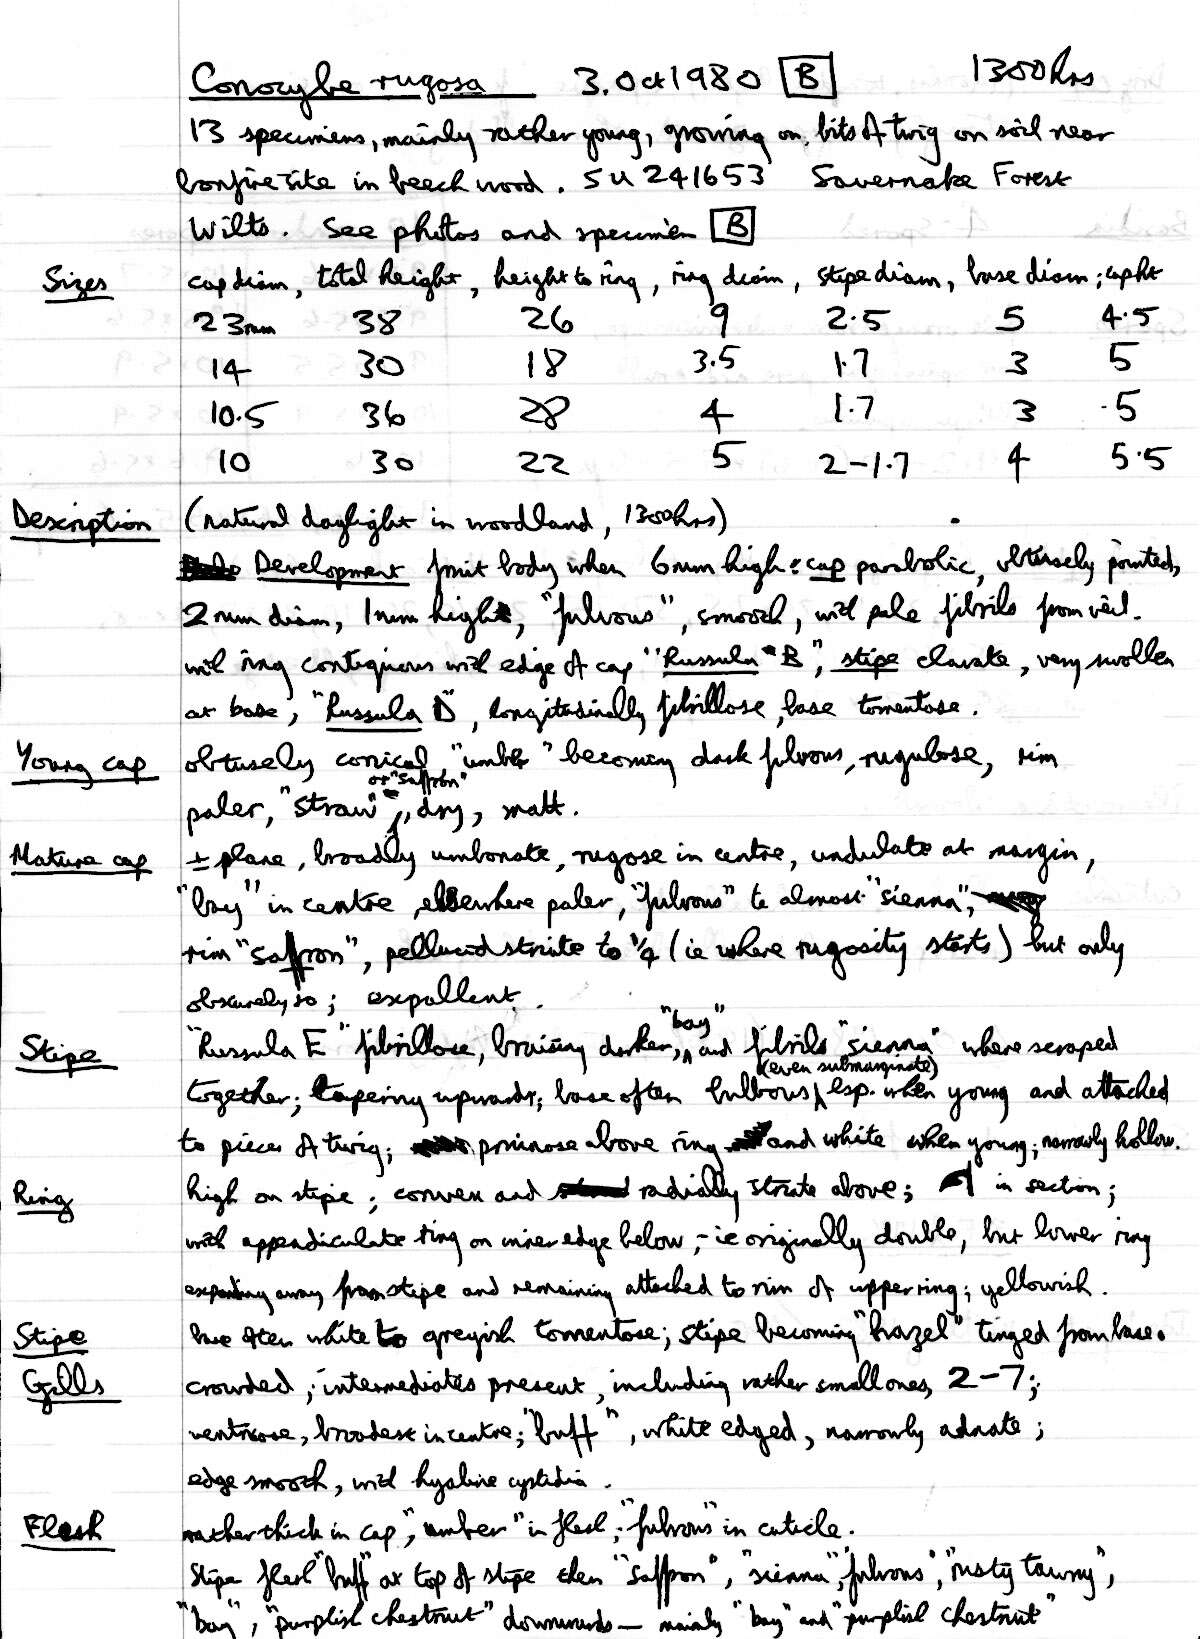 Conocybe rugosa 3. Oct 1980 B 1300hrs
13 specimens, mainly rather young, growing on bits of twig on soil near
bonfire site in beech wood. SU 241653 Savernake Forest
Wilts. See photos and specimen B
Sizes cap diam, total height, height to ring, ring diam, stipe diam, base diam; cap ht
23mm 38 26 9 2.5 5 4.5
14 30 18 3.5 1.7 3 5
10.5 36 28 4 1.7 3 .5
10 30 22 5 2-1.7 4 5.5
Description (natural daylight in woodland, 1300hrs)
Development fruit body when 6mm high: cap parabolic, obtusely pointed,
2mm diam, 1mm high, "fulvous", smooth, with pale fibrils from veil.
with ring contiguous with edge of cap "Russula B", stipe clavate, very swollen
at base, "Russula D", longitudinally fibrillose, base tomentose.
Young cap obtusely conical, "umber" becoming dark fulvous, rugulose, rim
paler, "straw" or "saffron", dry, matt.
Mature cap ± plane, broadly umbonate, rugose in centre, undulate at margin,
"bay" in centre, elsewhere paler, "fulvous" to almost "sienna",
rim "saffron", pellucid striate to ¼ (ie where rugosity starts) but only
obscurely so; expallent.
Stipe "Russula E" fibrillose, bruising darker, "bay" and fibrils "sienna" where scraped
together; tapering upwards; base often bulbous (even submarginate) esp. when young and attached
to pieces of twig; pruinose above ring and white when young; narrowly hollow.
Ring high on stipe; convex and radially striate above; in section;
with appendiculate ring on inner edge below; - ie originally double, but lower ring
expanding away from stipe and remaining attached to rim of upper ring; yellowish.
Stipe base often white to greyish tomentose; stipe becoming "hazel" tinged from base.
Gills crowded; intermediates present, including rather small ones, 2-7;
ventricose, broadest in centre; "buff", white edged, narrowly adnate;
edge smooth, with hyaline cystidia.
Flesh rather thick in cap, "umber" in flesh; "fulvous" in cuticle.
Stipe flesh "buff" at top of stipe then "saffron", "sienna", fulvous", "rusty tawny",
"bay", "purplish chestnut" downwards - mainly "bay" and "purplish chestnut"